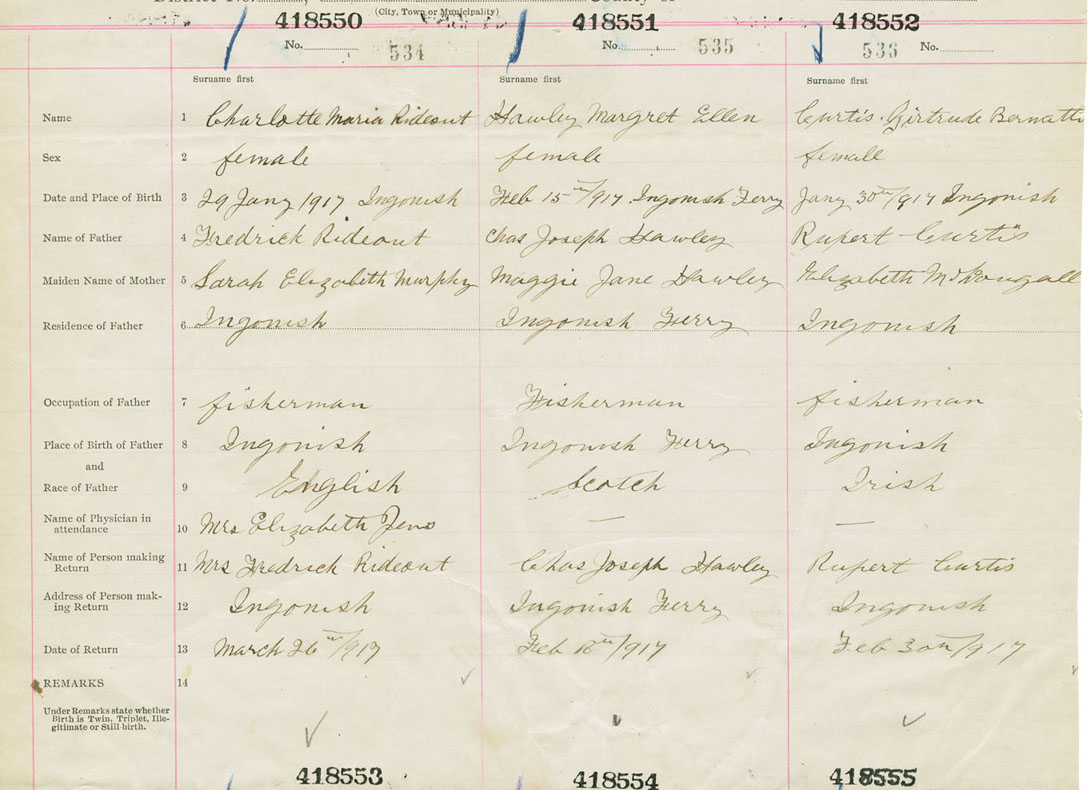 District No.
County of
(City, Town or Municipality)
418550 418551 418552
No. 534 No. 535 No. 536
Surname first Surname first Surname first
Name 1 Charlotte Maria Rideout Hawley Margret Ellen Curtis Girtrude
Sex 2 female female female
Date and Place of Birth 3 29 Jany 1917 Ingonish Feb 15th/917 Ingonish Ferry Jany 30th/917 Ingonish
Name of Father 4 Fredrick Rideout Chas Joseph Hawley Rupert Curtis
Maiden Name of Mother 5 Sarah Elizabeth Murphy Maggie Jane Hawley Elizabeth McDougall
Residence of Father 6 Ingonish Ingonish Ferry Ingonish
Occupation of Father 7 fisherman Fisherman fisherman
Place of Birth of Father 8 Ingonish Ingonish Ferry Ingonish
and
Race of Father 9 English Scotch Irish
Name of Physician in
attendance 10 Mrs Elizabeth — —
Name of Person making
Return 11 Mrs Fredrick Rideout Chas Joseph Hawley Rupert Curtis
Address of Person mak-
ing Return 12 Ingonish Ingonish Ferry Ingonish
Date of Return 13 March 26th/917 Feb 18th/917 Feb 30th/917
REMARKS 14
Under Remarks state whether
Birth is Twin, Triplet, Ille-
gitimate or Still-birth.
418553 418554 418555